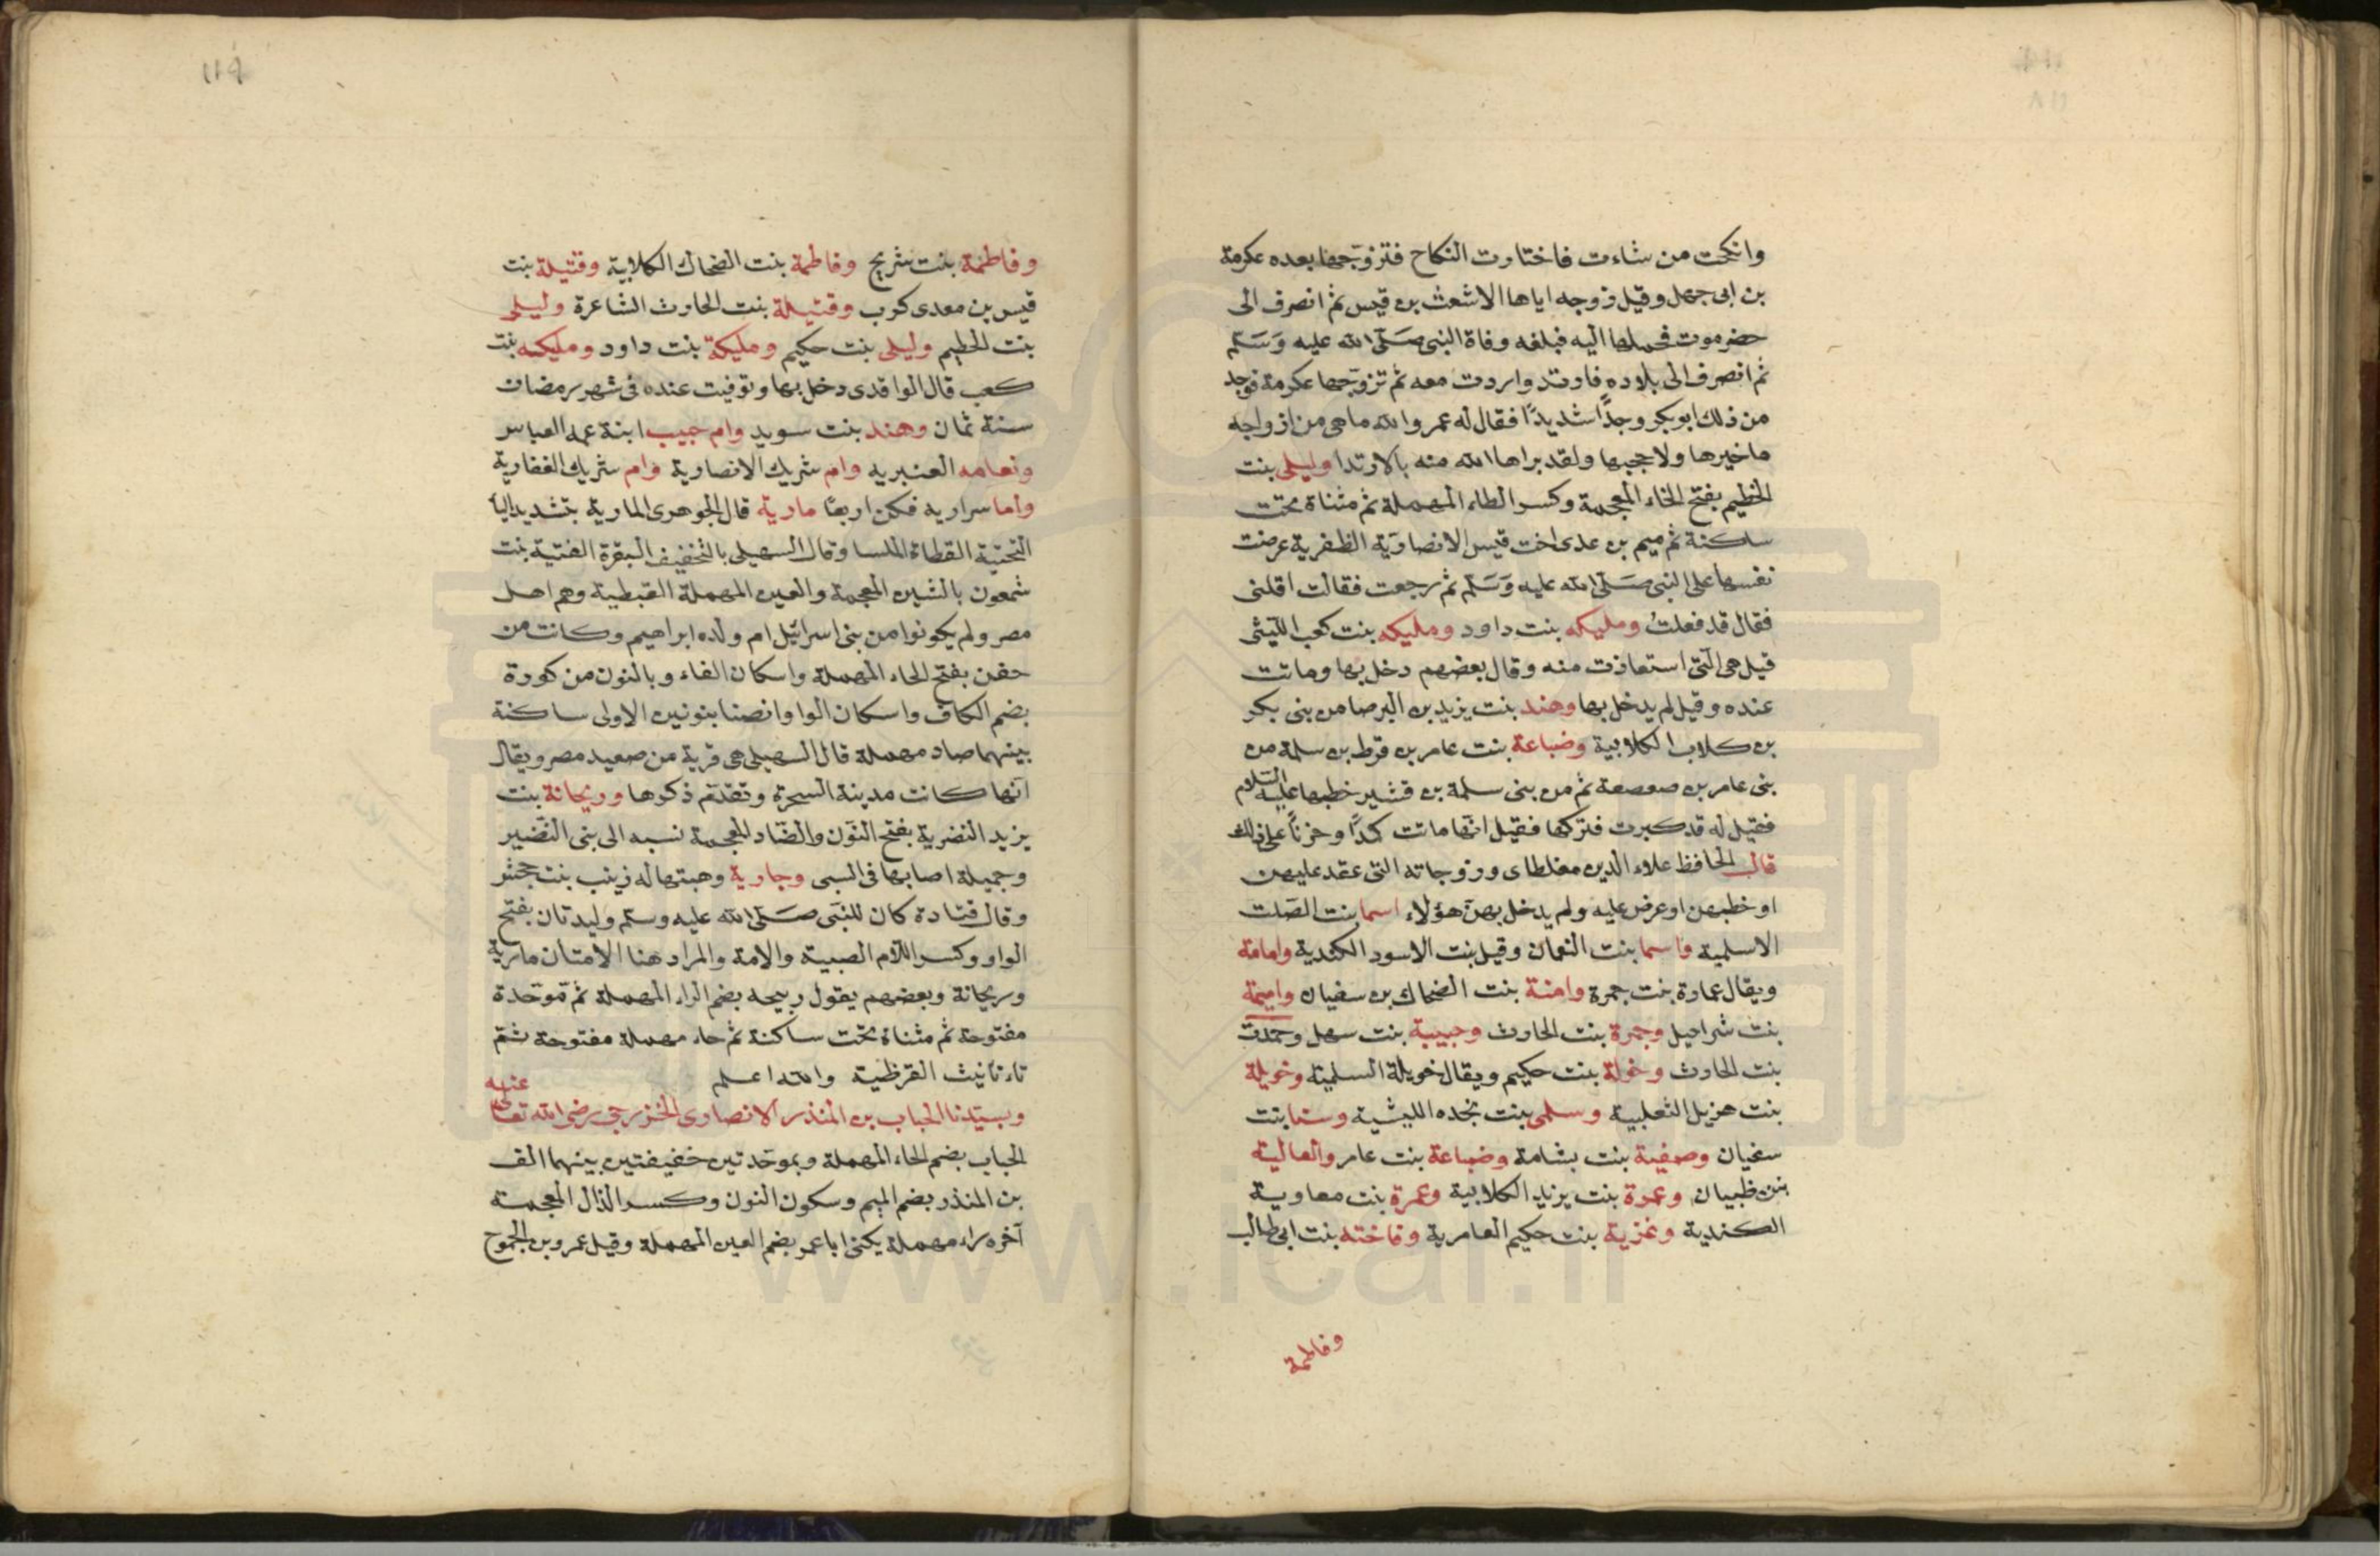 وانكحت من شاءت فاختارت النكاح فتزوّجها بعده عكرمة
بن ابى جهل وقيل زوجه اياها الاشعث بن قيس ثم انصرف الى
حضرموت فحملها اليه فبلغه وفاة النبى صَلّى الله عليه وَسَلّم
ثم انصرف الى بلاده فارتد واردت معه ثم تزوّجها عكرمة فوجد
من ذلك ابو بكر وجدًا شديدًا فقال له عمر والله ما هى من ازواجه
ماخيرها ولا حجبها ولقد براها الله منه بالارتدا وليلى بنت
الخطيم بفتح الخاء المعجمة وكسر الطاء المهملة ثم مثناة تحت
ساكنة ثم ميم بن عدى اخت قيس الانصاريّة الظفرية عرضت
نفسها على النبى صَلّى الله عليه وَسَلّم ثم رجعت فقالت اقلنى
فقال قد فعلتُ ومليكه بنت داود ومليكه بنت كعب الليثى
قيل هى الّتى استعاذت منه وقال بعضهم دخل بها وماتت
عنده وقيل لم يدخل بها وهند بنت يزيد بن البرصا من بنى بكر
بن كلاب الكلابية وضباعة بنت عامر بن قرط بن سلمة من
بنى عامر بن صعصعة ثم من بنى سلمة بن قشير خطبها عليه السّلام
فقيل له قد كبرت فتركها فقيل انّها ماتت كمدًا وحزنًا على ذلك
قال الحافظ علاء الدين مغلطاى وزوجاته التى عقد عليهن
او خطبهن او عرض عليه ولم يدخل بهنّ هؤلاء اسما بنت الصّلت
الاسلمية واسما بنت النعمان وقيل بنت الاسود الكندية وامامة
ويقال عمارة بنت حمزة وامنة بنت الضحاك بن سفيان واميمة
بنت شراحيل وجمرة بنت الحارث وحبيبة بنت سهل وحمدت
بنت الحارث وخولة بنت حكيم ويقال خويلة السلمية وخويلة
بنت هزيل الثعلبية وسلمى بنت نجده الليثية وسنا بنت
سفيان وصفية بنت بشامة وضباعة بنت عامر والعالية
بنت ظبيان وعمرة بنت يزيد الكلابية وعمرة بنت معاوية
الكندية وغزية بنت حكيم العامرية وفاخته بنت ابى طالب
وفاطمة
وفاطمة بنت شريح وفاطمة بنت الضحاك الكلابية وقتيلة بنت
قيس بن معدى كرب وقتيلة بنت الحارث الشاعرة وليلى
بنت الحطيم وليلى بنت حكيم ومليكة بنت داود ومليكه بنت
كعب قال الواقدى دخل بها وتوفيت عنده فى شهر رمضان
سنة ثمان وهند بنت سويد وام حبيب ابنة عمه العباس
ونعامه العنبريه وام شريك الانصارية وام شريك الغفارية
واما سراريه فكن اربعًا مارية قال الجوهرى المارية بتشديد اليا
التحتية القطاة الملسا وقال السهيلى بالتخفيف البقرة الفتية بنت
شمعون بالشين المعجمة والعين المهملة القبطية وهم اهل
مصر ولم يكونوا من بنى اسرائيل ام ولده ابراهيم وكانت من
حفن بفتح الحاء المهملة واسكان الفاء وبالنون من كورة
بضم الكاف واسكان الواو انصنا بنونين الاولى ساكنة
بينهما صاد مهملة قال السهيلى هى قرية من صعيد مصر ويقال
انّها كانت مدينة السحرة وتقدّم ذكرها وريحانة بنت
يزيد النضرية بفتح النّون والضّاد المعجمة نسبه الى بنى النّضير
وجميلة اصابها فى السبى وجارية وهبتها له زينب بنت جحش
وقال قتادة كان للنبّى صَلّى الله عليه وسلّم وليدتان بفتح
الواو وكسر اللّام الصبية والامة والمراد هنا الامتان مارية
وريحانة وبعضهم يقول ربيحه بضم الراء المهملة ثم موّحدة
مفتوحة ثم مثناة تحت ساكنة ثم حاء مهملة مفتوحة ثم
تاء تانيث القرظية والله اعلم
وبسيّدنا الحباب بن المنذر الانصارى الخزرجى رضى الله تعالى عنه
الحباب بضم الحاء المهملة وبموحّدتين خفيفتين بينهما الف
بن المنذر بضم الميم وسكون النون وكسر الذال المعجمة
آخره راء مهملة يكنى ابا عمر بضم العين المهملة وقيل عمرو بن الجموح
www.ical.ir